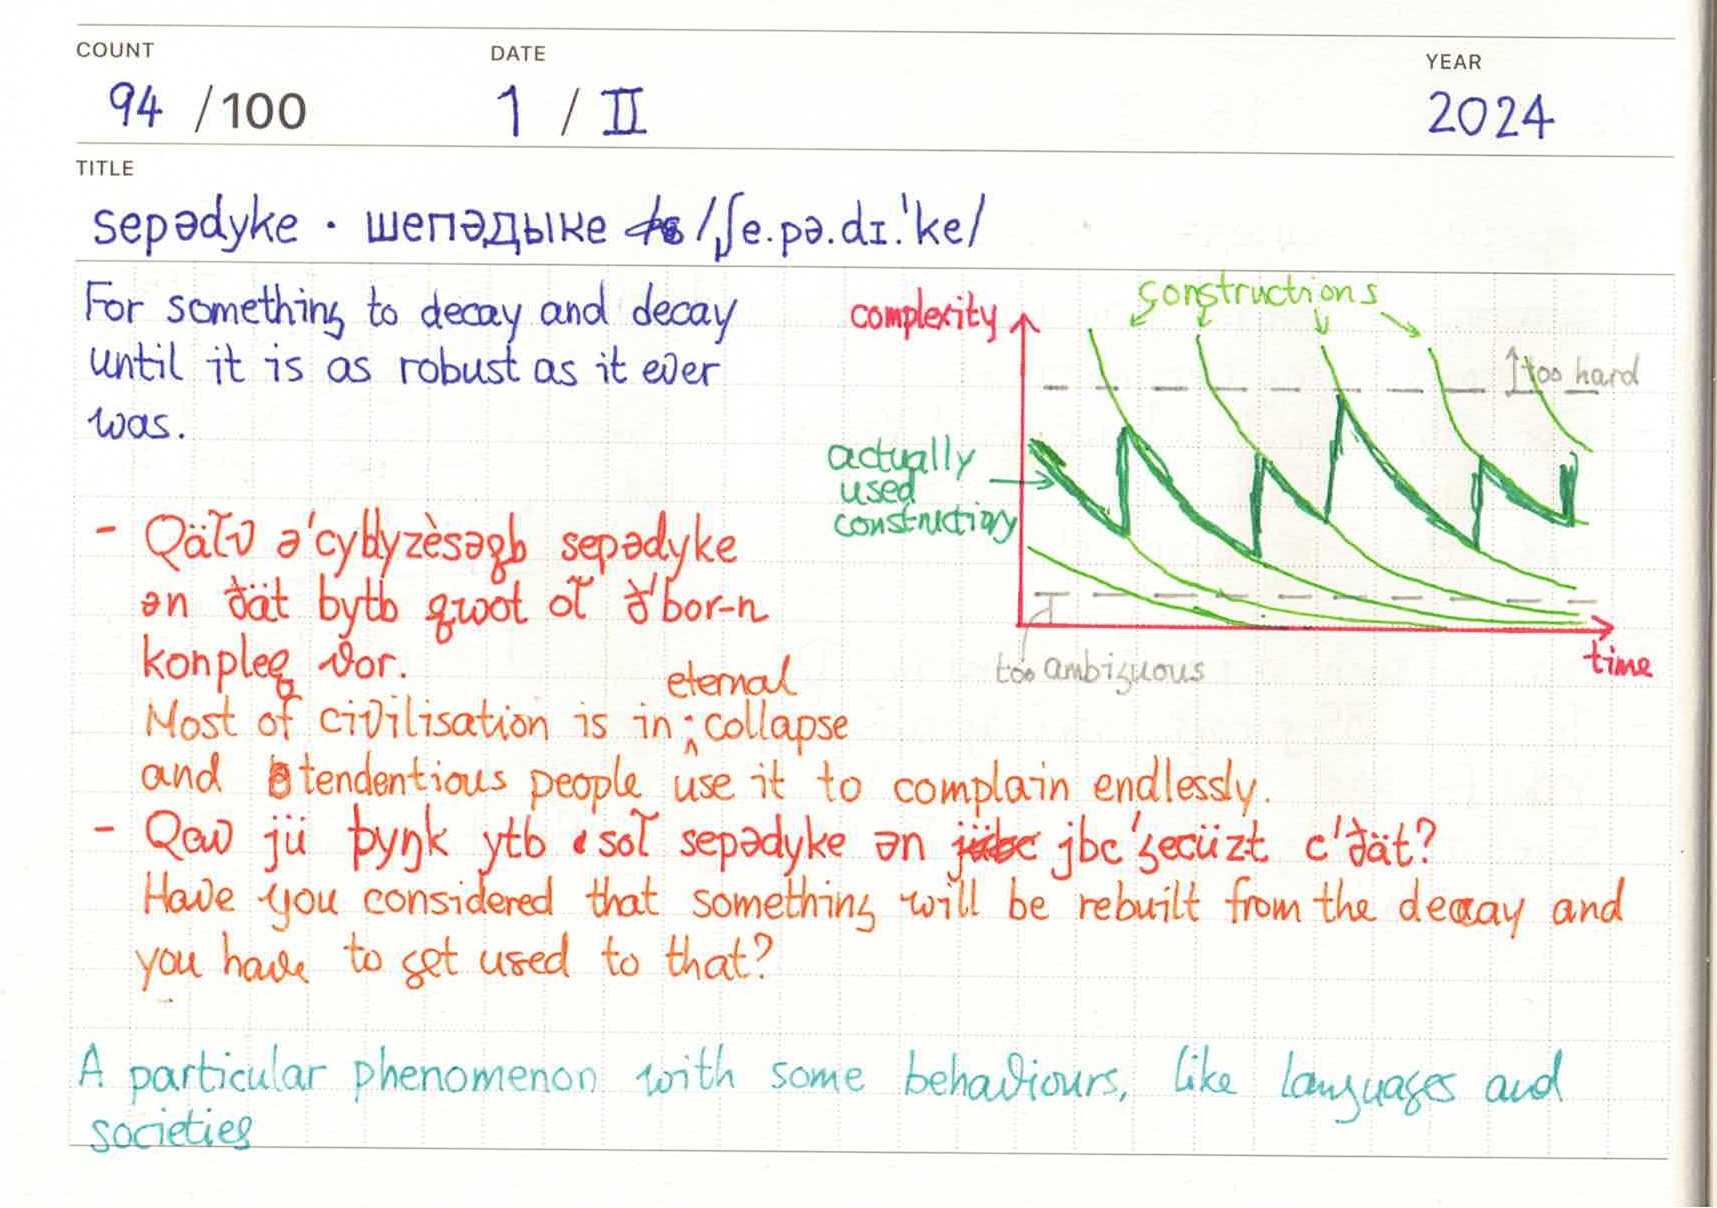 COUNT
94 /100
DATE
1 / II
YEAR
2024
TITLE
sepədyke · шепәдыке /ˌʃe.pə.dɪ.ˈke/
For something to decay and decay
until it is as robust as it ever
was.
complexity
constructions
too hard
actually
used
construction
too ambiguous
time
sepədyke
ən ðät bytb
konpleq vor.
eternal
Most of civilisation is in collapse
and tendentious people use it to complain endlessly.
- Qaw jü þyŋk ytb sepədyke ən c'ðät?
Have you considered that something will be rebuilt from the decay and
you have to get used to that?
A particular phenomenon with some behaviours, like languages and
societies